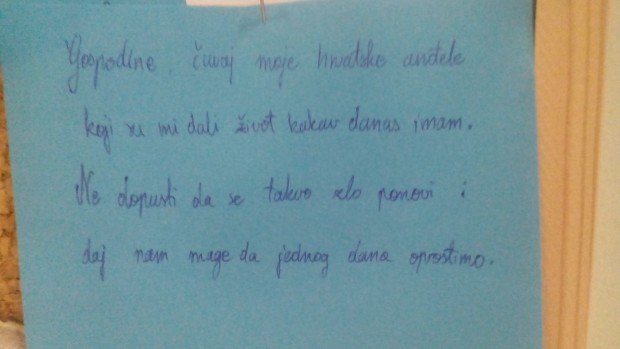 Gospodine, čuvaj moje hrvatske anđele
koji su mi dali život kakav danas imam.
Ne dopusti da se takvo zlo ponovi i
daj nam snage da jednog dana oprostimo.